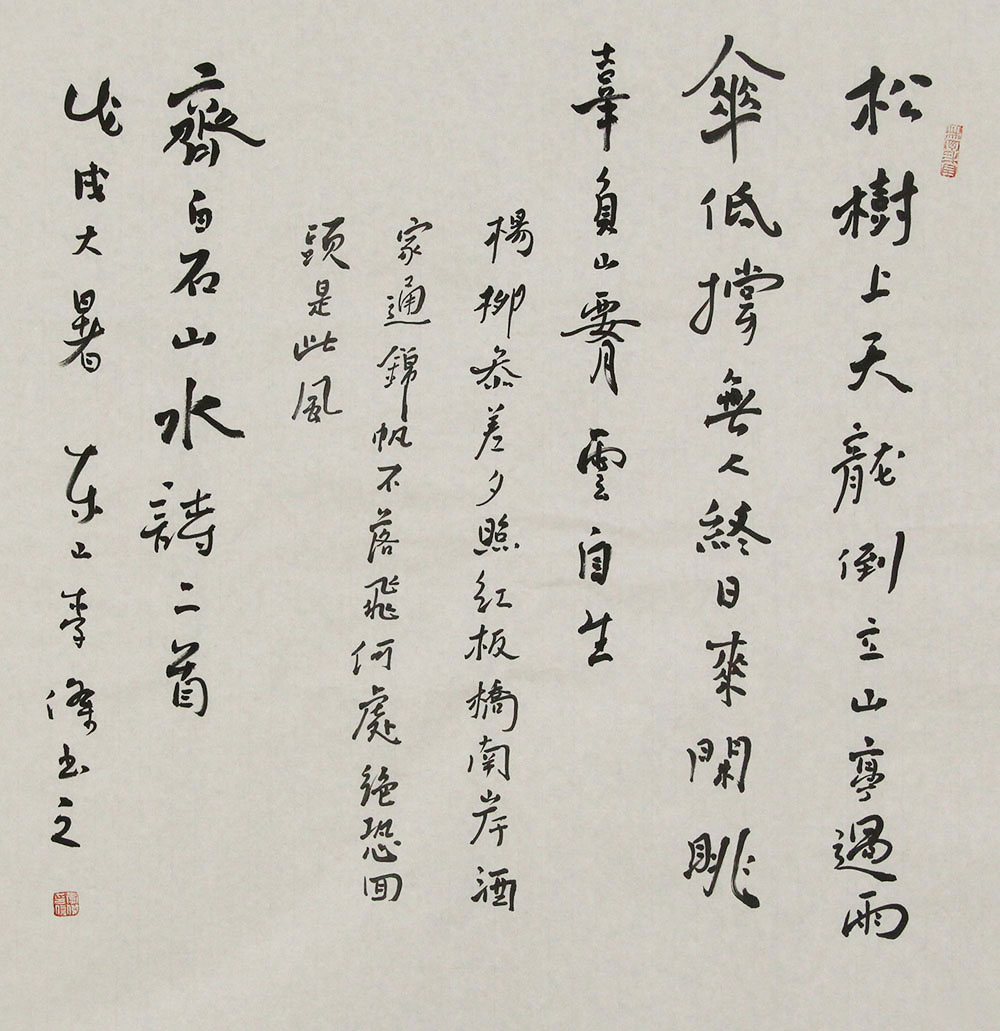 松樹上天龍倒立山亭過雨
傘低撐無人終日來閑眺
辜負山霄雲自生
楊柳參差夕照紅板橋南岸酒
家通錦帆不落飛何處絕恐回
頭是此風
齊白石山水詩二首
戊戌大暑 山李滌書之